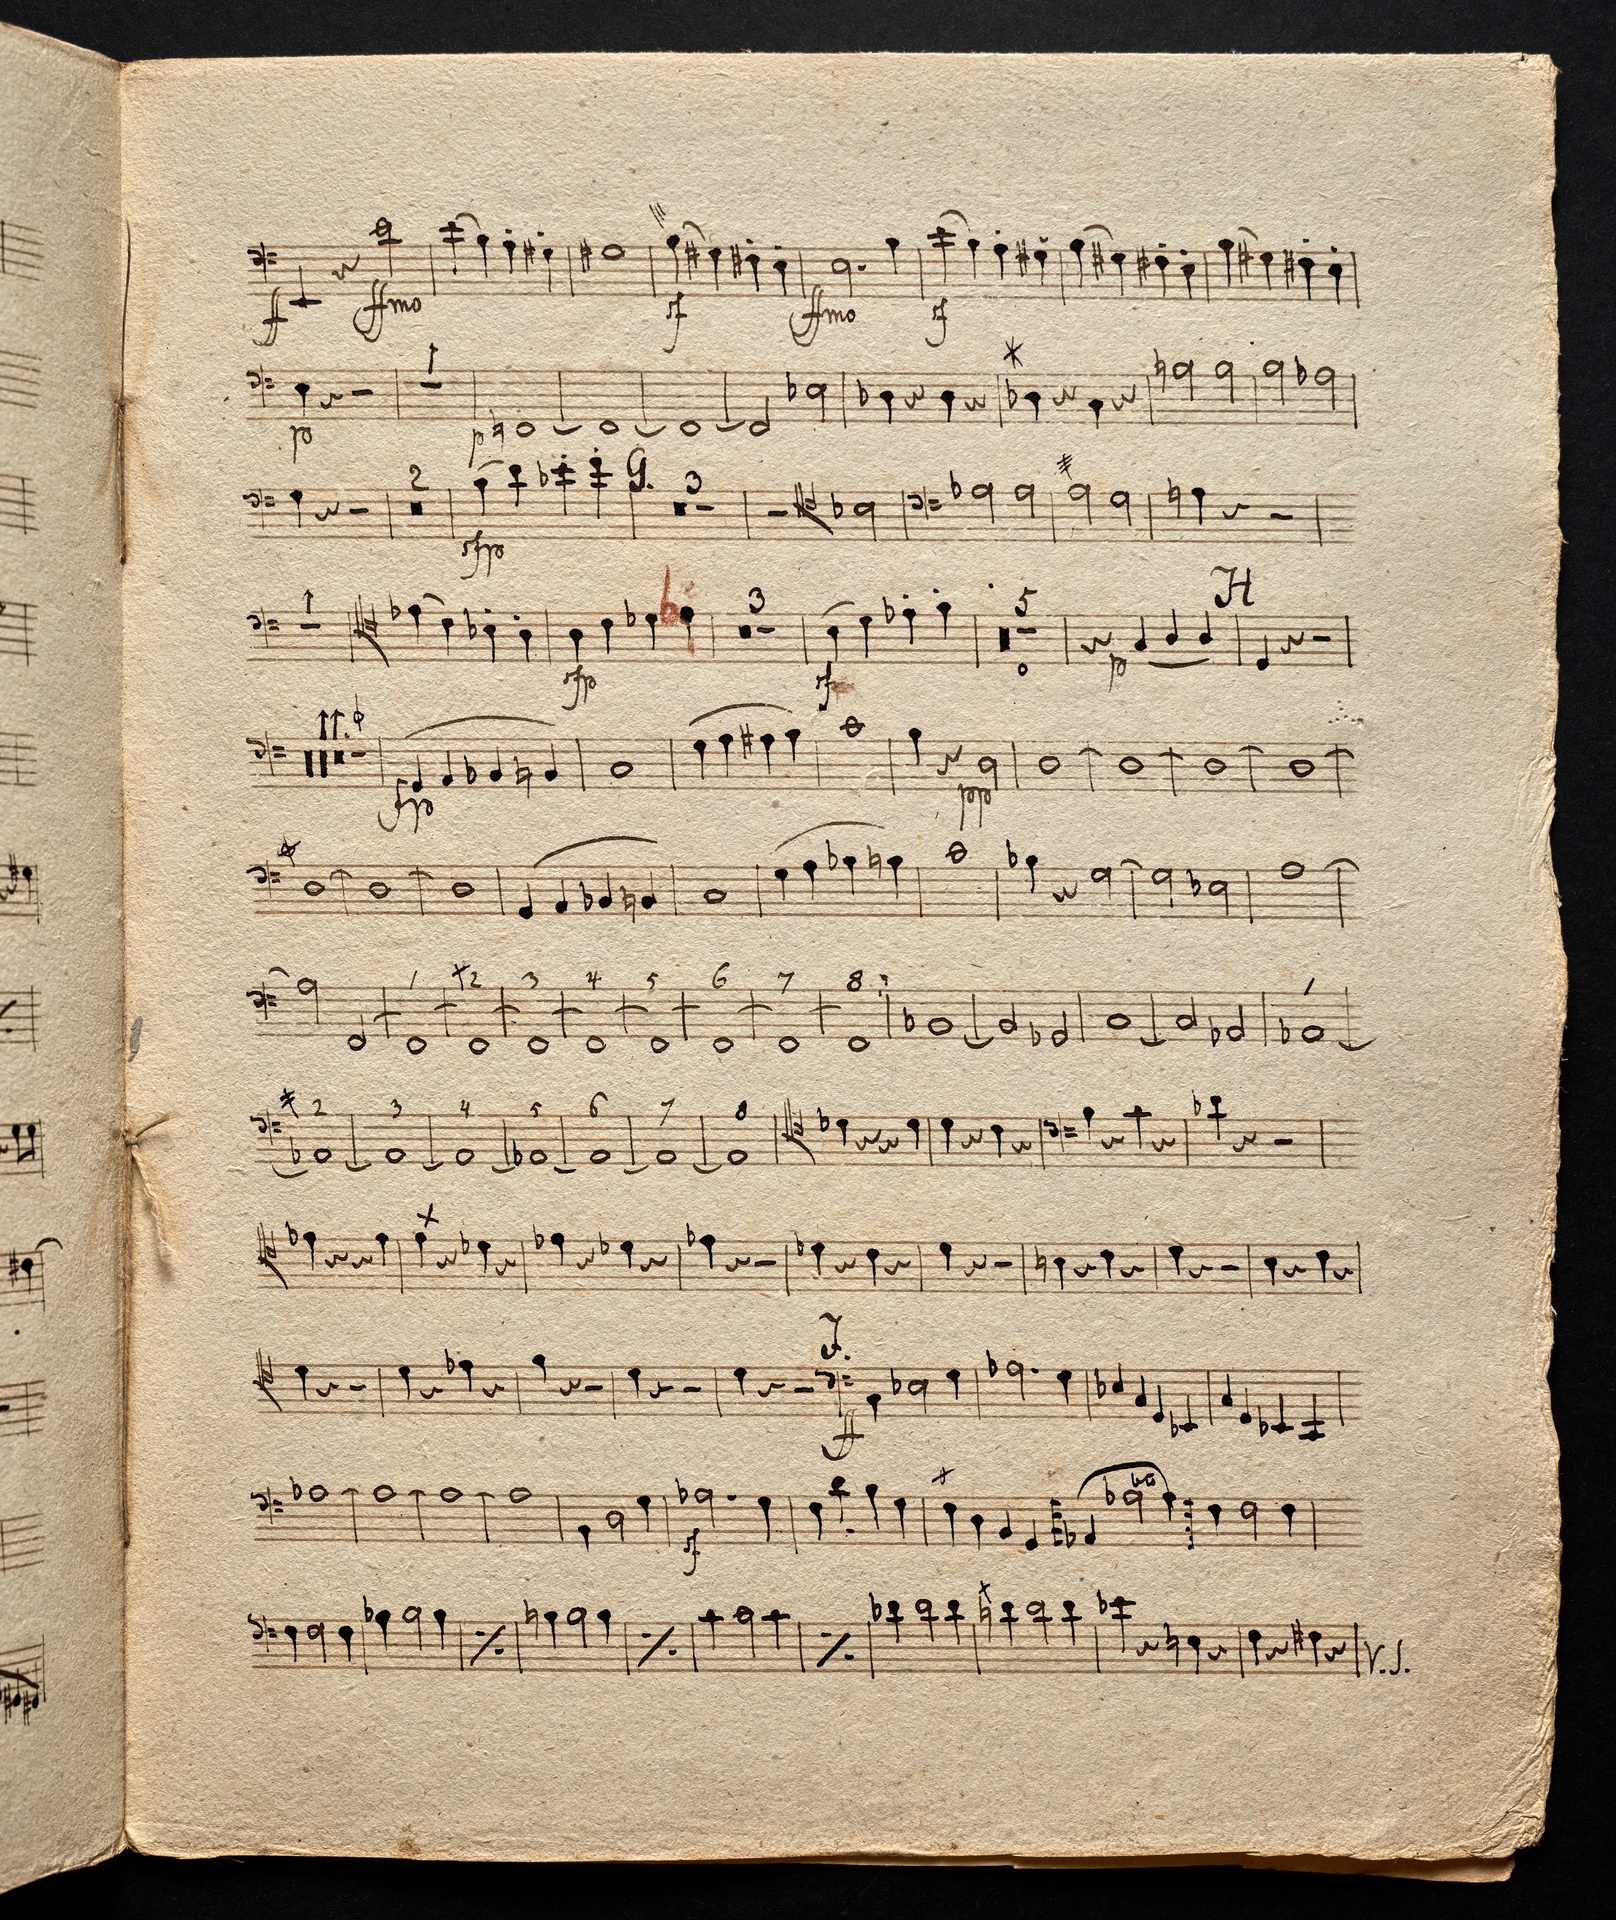 ff ffmo sf ffmo sf
1
p p
2 G. 3
sfp
1 3 5 H
sfp sf p
11.
sfp pp
1 2 3 4 5 6 7 8 1
2 3 4 5 6 7 8
J.
ff
sf
V.S.